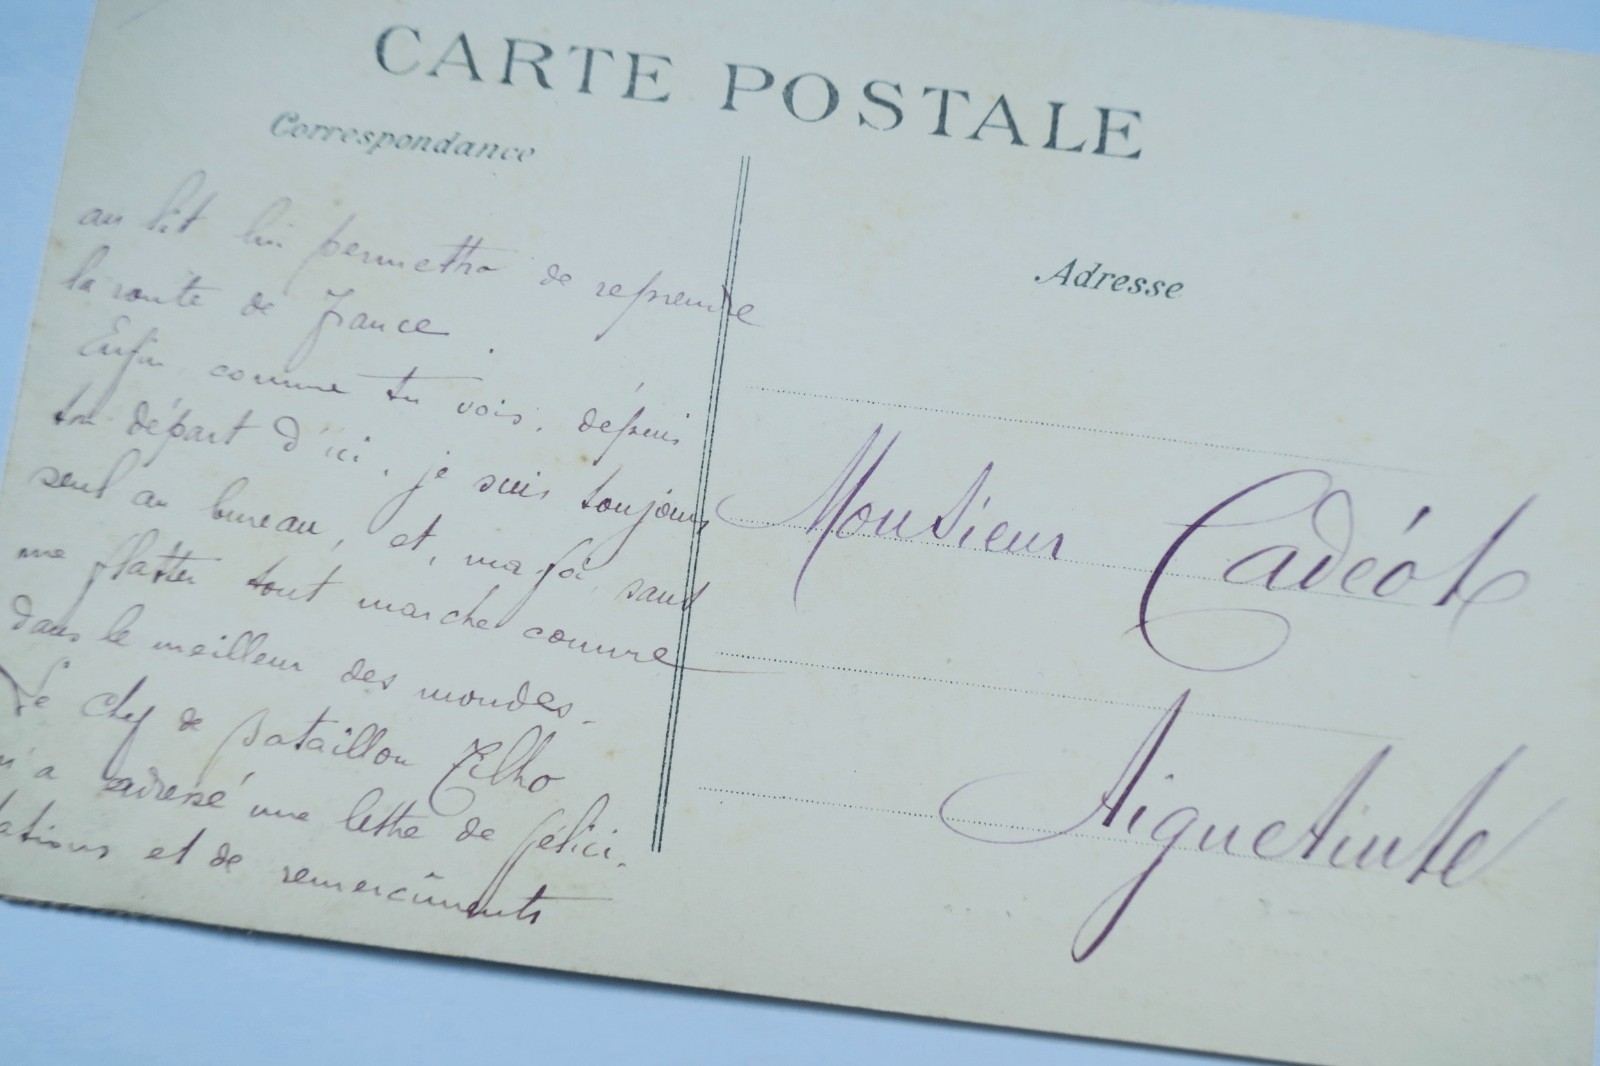 CARTE POSTALE
Correspondance
au lit lui permettra de reprendre
la route de France.
Enfin, comme tu vois, dépuis
ton départ d'ici, je suis toujours
seul au bureau, et, ma foi sans
me flatter tout marche comme
dans le meilleur des mondes.
Le chef de bataillon Tilho
m'a adressé une lettre de félici-
tations et de remercîments
Adresse
Monsieur Cadéot
Aiguetinte